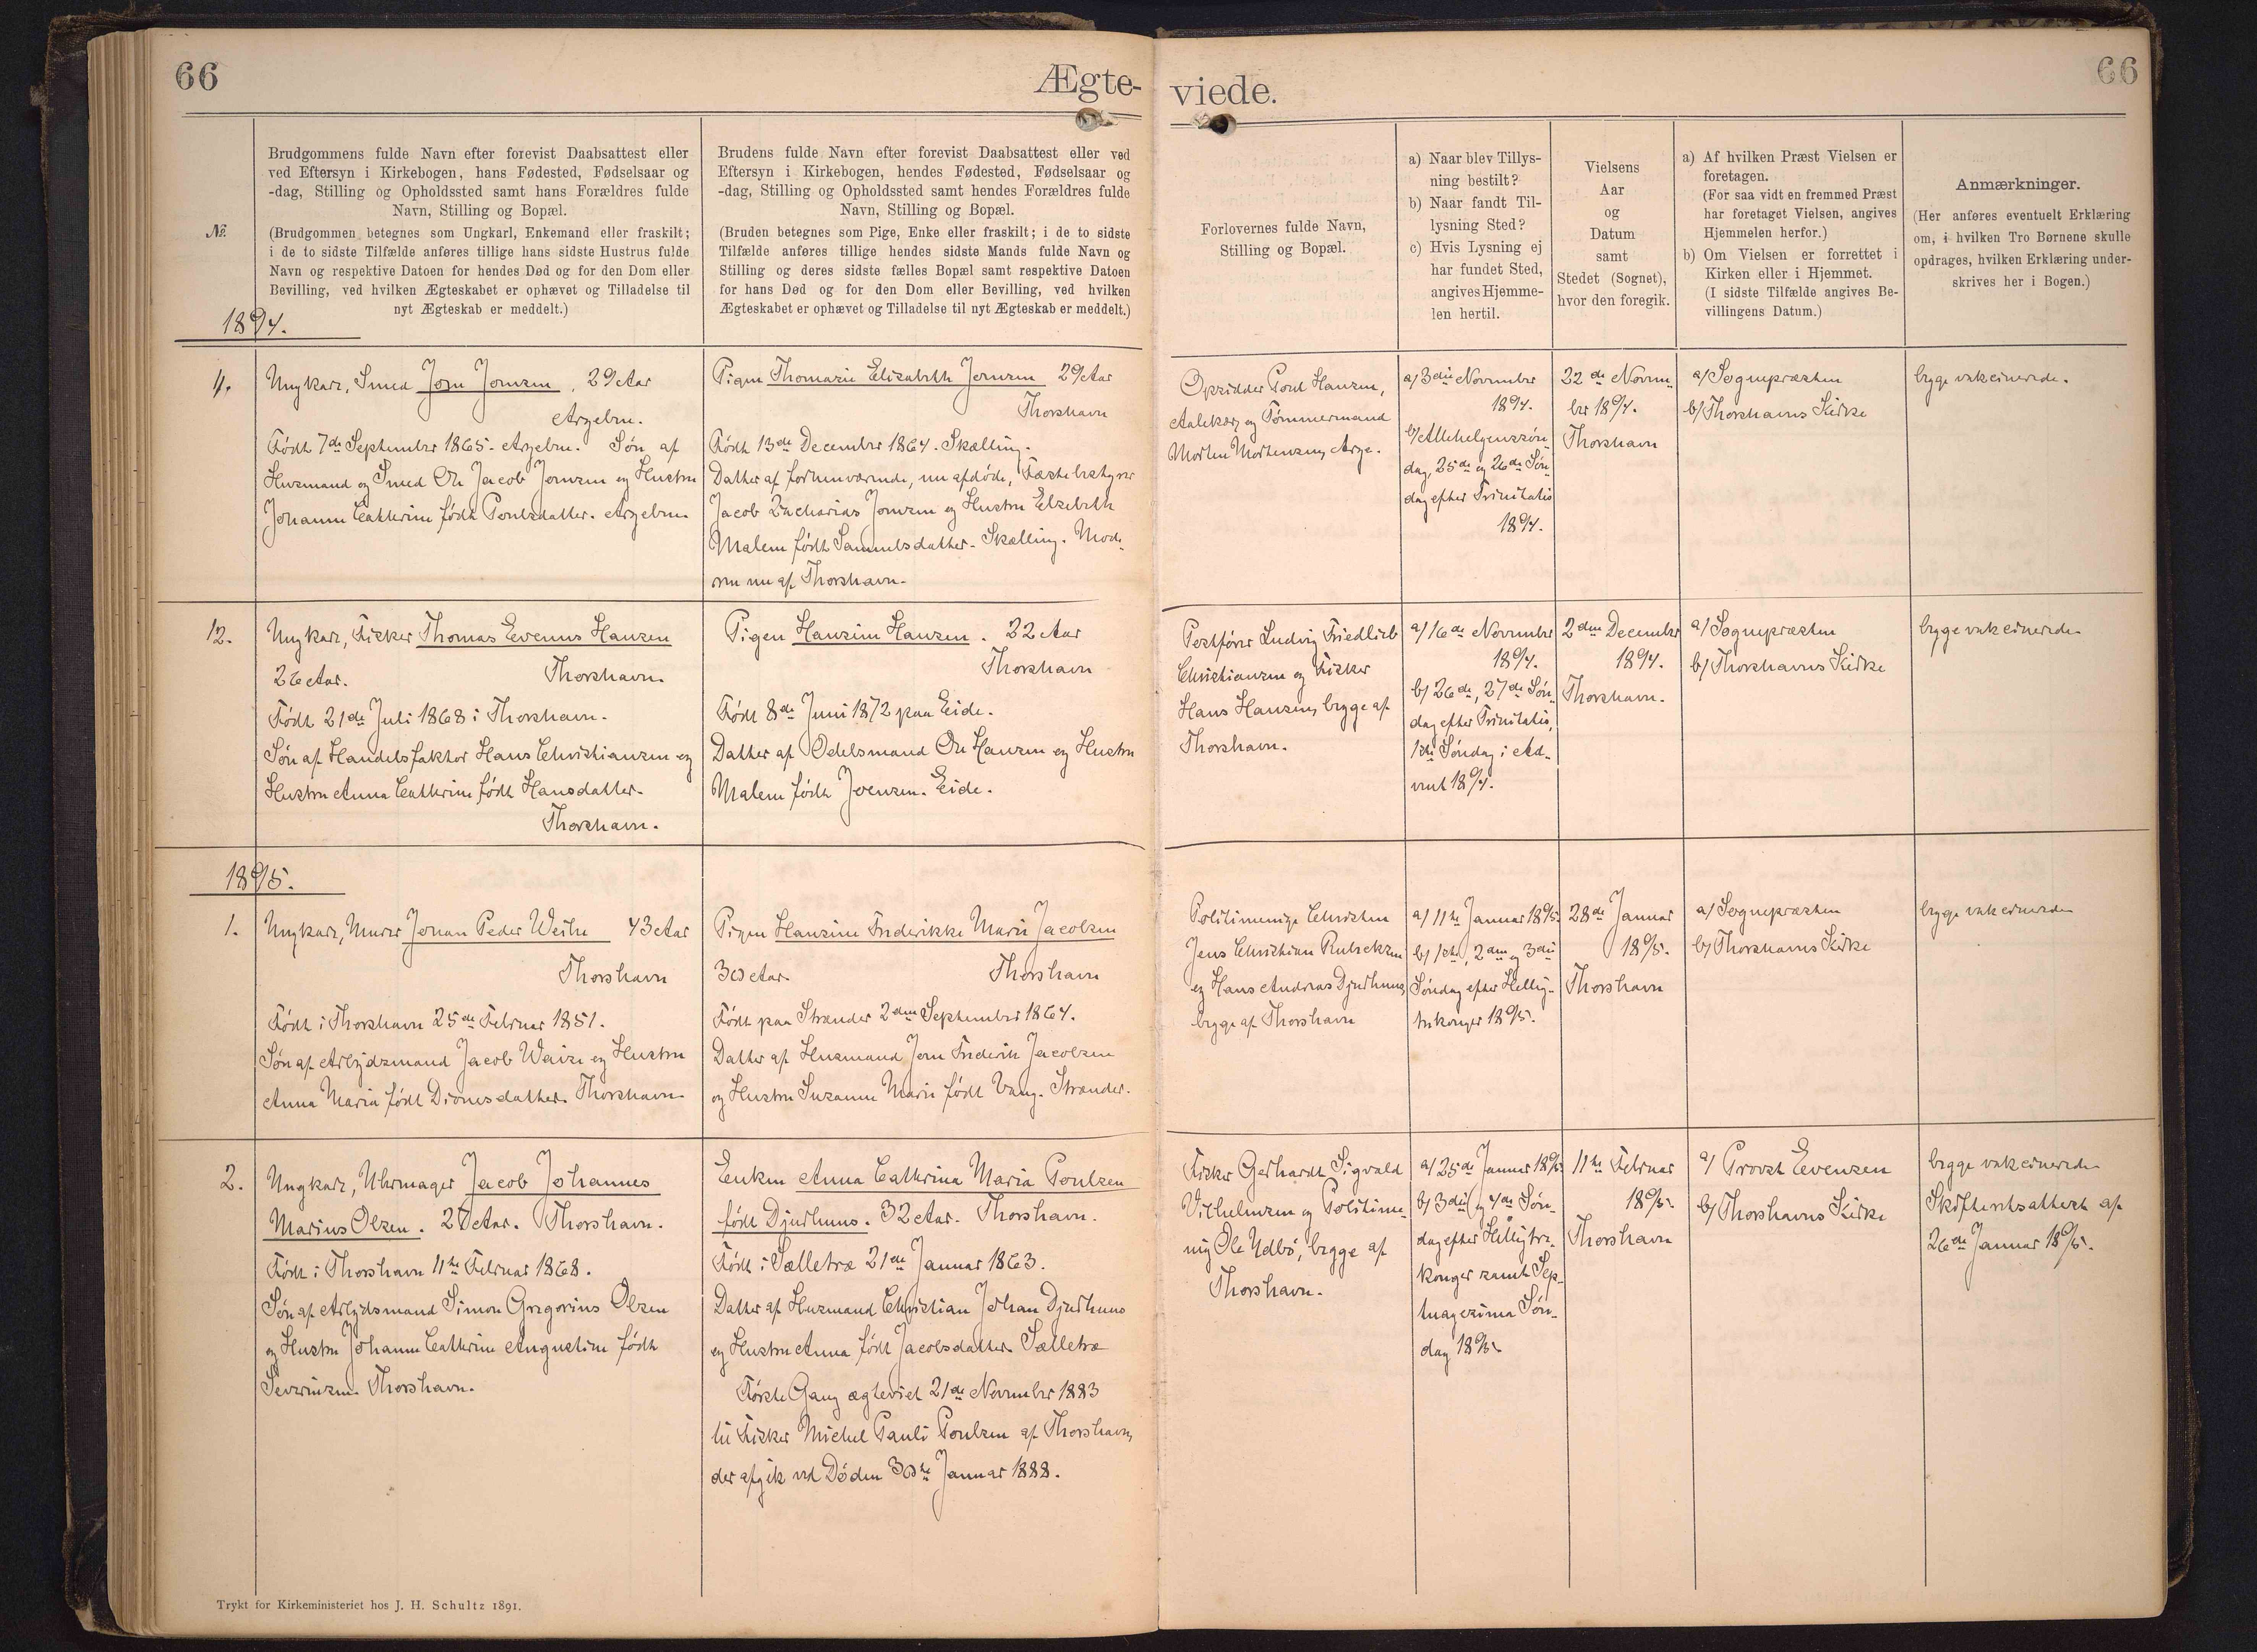 66
Ægte-
viede.
66
№
Brudgommens fulde Navn efter forevist Daabsattest eller
ved Eftersyn i Kirkebogen, hans Fødested, Fødselsaar og
-dag, Stilling og Opholdssted samt hans Forældres fulde
Navn, Stilling og Bopæl.
(Brudgommen betegnes som Ungkarl, Enkemand eller fraskilt;
i de to sidste Tilfælde anføres tillige hans sidste Hustrus fulde
Navn og respektive Datoen for hendes Død og for den Dom eller
Bevilling, ved hvilken Ægteskabet er ophævet og Tilladelse til
nyt Ægteskab er meddelt.)
Brudens fulde Navn efter forevist Daabsattest eller ved
Eftersyn i Kirkebogen, hendes Fødested, Fødselsaar og
-dag, Stilling og Opholdssted samt hendes Forældres fulde
Navn, Stilling og Bopæl.
(Bruden betegnes som Pige, Enke eller fraskilt; i de to sidste
Tilfælde anføres tillige hendes sidste Mands fulde Navn og
Stilling og deres sidste fælles Bopæl samt respektive Datoen
for hans Død og for den Dom eller Bevilling, ved hvilken
Ægteskabet er ophævet og Tilladelse til nyt Ægteskab er meddelt.)
Forlovernes fulde Navn,
Stilling og Bopæl.
a) Naar blev Tillys-
ning bestilt?
b) Naar fandt Til-
lysning Sted?
c) Hvis Lysning ej
har fundet Sted,
angives Hjemme-
len hertil.
Vielsens
Aar
og
Datum
samt
Stedet (Sognet),
hvor den foregik.
a) Af hvilken Præst Vielsen er
foretagen.
(For saa vidt en fremmed Præst
har foretaget Vielsen, angives
Hjemmelen herfor.)
b) Om Vielsen er forrettet i
Kirken eller i Hjemmet.
(I sidste Tilfælde angives Be-
villingens Datum.)
Anmærkninger.
(Her anføres eventuelt Erklæring
om, i hvilken Tro Børnene skulle
opdrages, hvilken Erklæring under-
skrives her i Bogen.)
1894.
Ungkarl, Smed Joen Joensen, 29 Aar
Argebro.
Født 7de September 1865. Argebro. Søn af
Husmand og Smed Ole Jacob Joensen og Hustru
Johanne Cathrine født Poulsdatter. Argebro.
Pigen Thomasie Elisabeth Joensen 29 Aar
Thorshavn
Født 13de December 1864. Skælling.
Datter af forhenværende, nu afdøde, Fæstebestyrer
Jacob Zacharias Joensen og Hustru Elsebeth
Malene født Samuelsdatter. Skælling. Mode-
ren nu af Thorshavn.
Opsidder Poul Hansen,
Aalekær, og Tømmermand
Morten Mortensen, Arge.
a) 3die November
1894.
b) Allehelgenssøn-
dag, 25de og 26de Søn-
dag efter Trinitatis
1894.
22de Novem-
ber 1894.
Thorshavn
a) Sognepræsten
b) Thorshavns Kirke
begge vakcinerede.
12.
Ungkarl, Fisker Thomas Evenus Hansen
26 Aar. Thorshavn
Født 21de Juli 1868 i Thorshavn.
Søn af Handelsfaktor Hans Christiansen og
Hustru Anna Cathrine født Hansdatter.
Thorshavn.
Pigen Hansine Hansen. 22 Aar
Thorshavn
Født 8de Juni 1872 paa Eide.
Datter af Odelsmand Ole Hansen og Hustru
Malene født Joensen. Eide.
Postfører Ludvig Friedlieb
Christiansen og Fisker
Hans Hansen, begge af
Thorshavn.
a) 16de November
1894.
b) 26de, 27de Søn-
dag efter Trinitatis,
1ste Søndag i Ad-
vent 1894.
2den December
1894.
Thorshavn.
a) Sognepræsten
b) Thorshavns Kirke
begge vakcinerede
1895.
1.
Ungkarl, Murer Johan Peder Weihe 43 Aar
Thorshavn
Født i Thorshavn 25de Februar 1851.
Søn af Arbejdsmand Jacob Waise og Hustru
Anna Maria født Dionesdatter. Thorshavn
Pigen Hansine Frederikke Marie Jacobsen
30 Aar Thorshavn
Født paa Strænder 2den September 1864.
Datter af Husmand Joen Frederik Jacobsen
og Hustru Susanne Marie født Vang. Strænder.
Politimenige Christen
Jens Christian Rubeksen
og Hans Andreas Djurhuus,
begge af Thorshavn
a) 11te Januar 1895.
b) 1ste, 2den og 3die
Søndag efter Hellig-
trekonger 1895.
28de Januar
1895.
Thorshavn
a) Sognepræsten
b) Thorshavns Kirke
begge vakcinerede
2.
Ungkarl, Uhrmager Jacob Johannes
Marius Olsen. 27 Aar. Thorshavn.
Født i Thorshavn 11te Februar 1868.
Søn af Arbejdsmand Simon Gregorius Olsen
og Hustru Johanne Cathrine Augustine født
Severinsen. Thorshavn.
Enken Anna Cathrina Maria Poulsen
født Djurhuus. 32 Aar. Thorshavn.
Født i Sælletræ 21de Januar 1863.
Datter af Husmand Christian Johan Djurhuus
og Hustru Anna født Jacobsdatter. Sælletræ
Første Gang ægteviet 21de November 1883
til Fisker Michel Pauli Poulsen af Thorshavn,
der afgik ved Døden 30te Januar 1888.
Fisker Gerhardt Sigvald
Vilhelmsen og Politime-
nig Ole Ydbø, begge af
Thorshavn.
a) 25de Januar 1895
b) 3die og 4de Søn-
dag efter Helligtre-
konger samt Sep-
tuagesima Søn-
dag 1895.
11te Februar
1895.
Thorshavn
a) Provst Evensen
b) Thorshavns Kirke
begge vakcinerede
Skifteretsattest af
26de Januar 1895.
Trykt for Kirkeministeriet hos J. H. Schultz 1891.